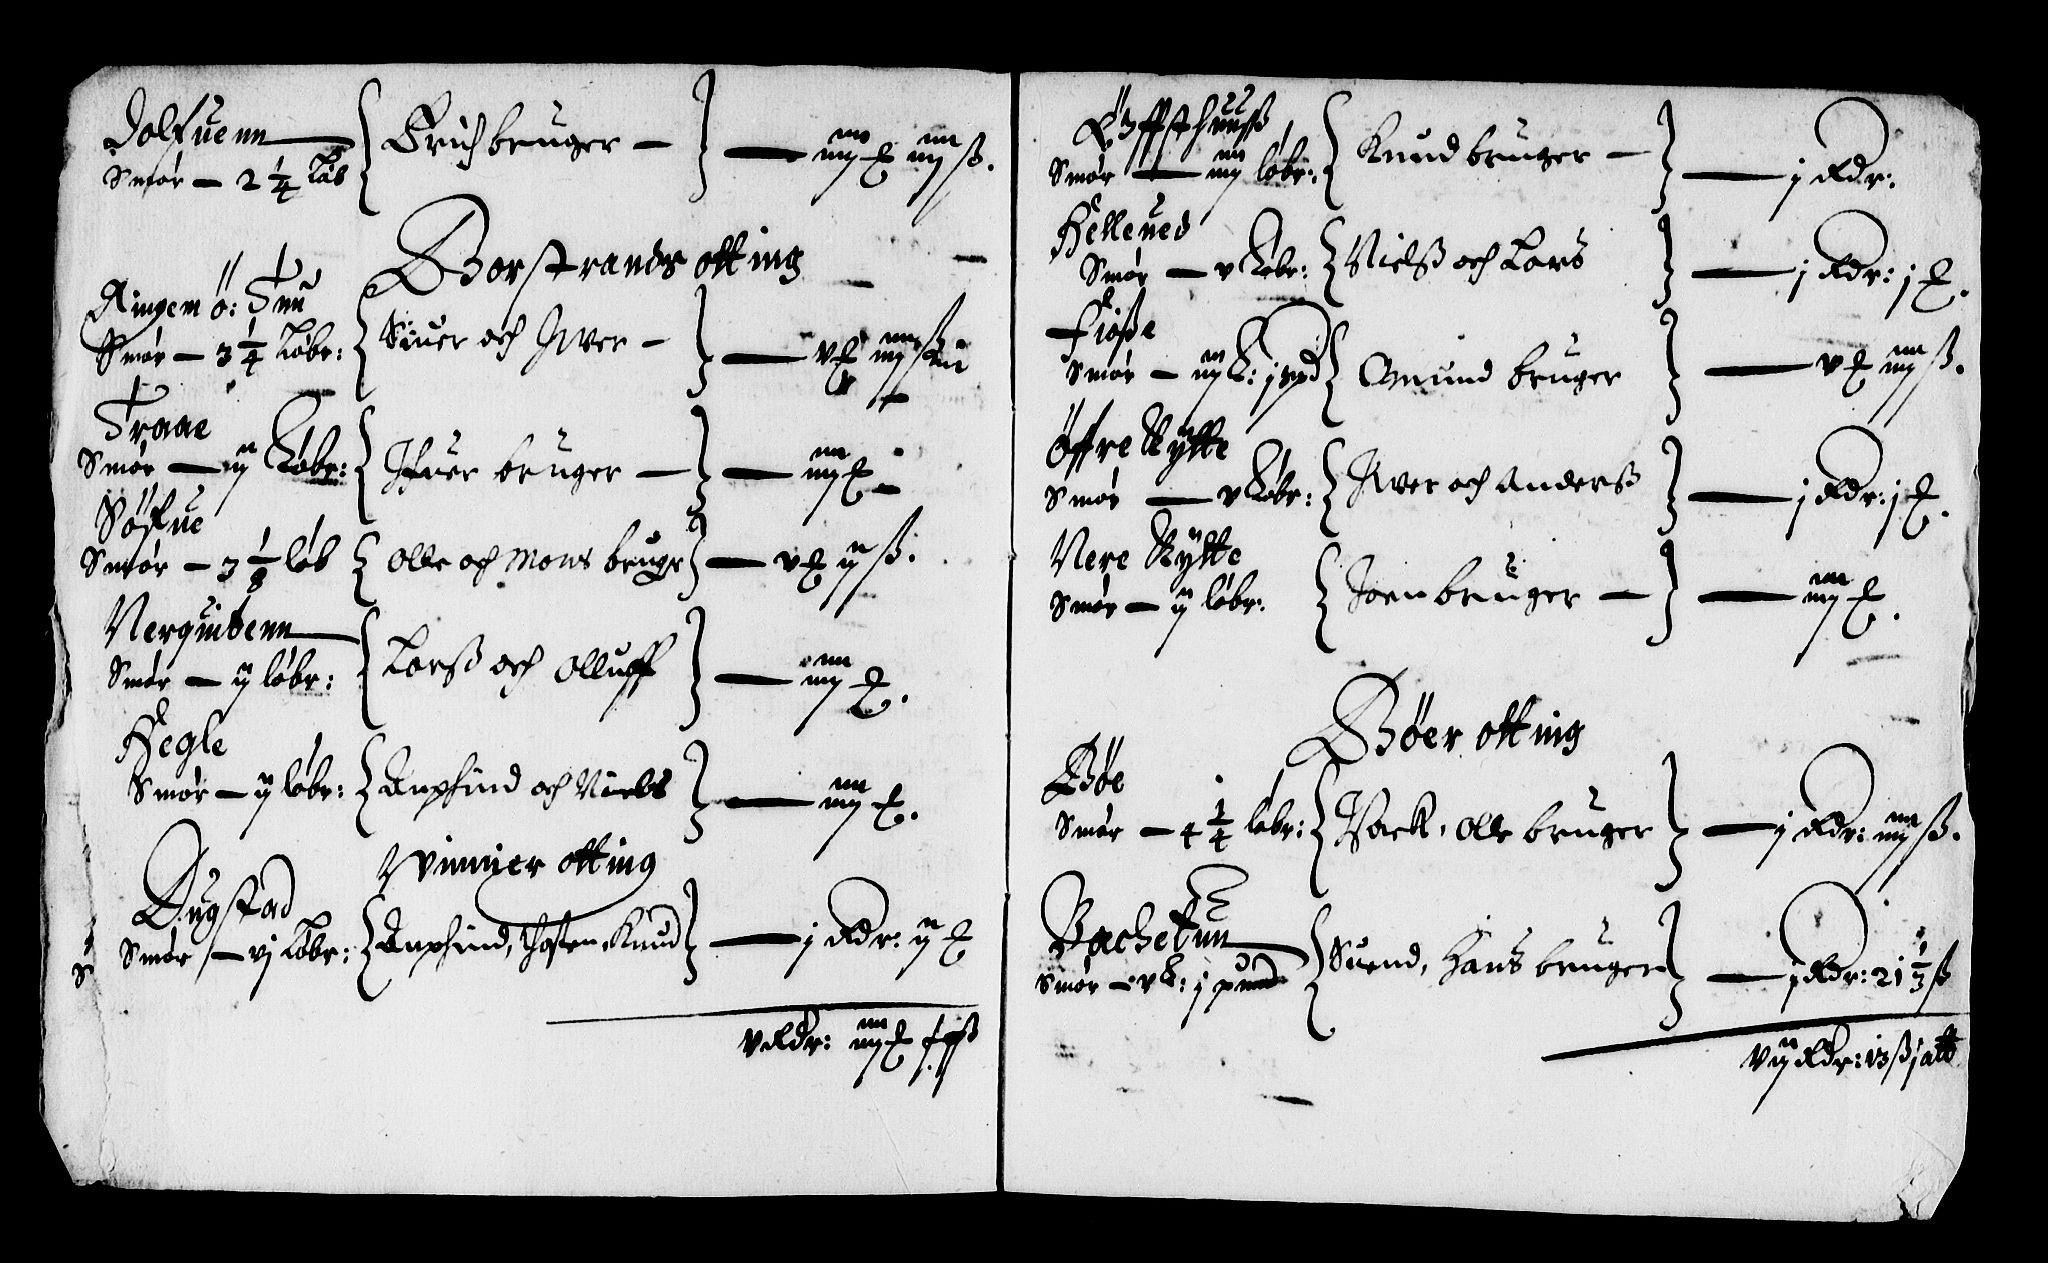 Dolfuenn
Smør — 2 1/4 Løb { Erich bruger — } — iiij ß.
Borstrands otting
Ringem ö: Tun
Smør — 3 1/4 Løbr: { Siuer och Iver — } — v
Traae
Smør — ij Løbr: { Ifuer bruger — } — iiij
Søfue
Smør — 3 1/8 løb { Olle och Mons brugr } — v ij ß.
Nerquitenn
Smør — ij løbr: { Larß och Olluff } — iiij
Hegle
Smør — ij løbr: { Anphind och Niels } — iiij
Winnier otting
Dugstad
Smør — vj Løbr: { Anphind, Thosten, Knud } — j Rdr: ij
v Rdr: iiij
Smør — iiij løbr: { Knud bruger — } — j Rdr:
Helleued
Smør — v Løbr: { Nielß och Lars } — j Rdr: j
Fioße
Smør — iij L: j pd { Omund bruger } — v iiij ß.
Øffre Kytte
Smør — v Løbr: { Iver och Anderß } — j Rdr: j
Nere Kytte
Smør — ij løbr: { Joen bruger — } — iiij
Bøer otting
Bøe
Smør — 4 1/4 løbr: { Isack, Olle bruger } — j Rdr: iiij ß.
Bachetun
Smør — v L: j pund { Suend, Hans bruger } — j Rdr: 21 1/3 ß
vij Rdr: 13 ß j alb